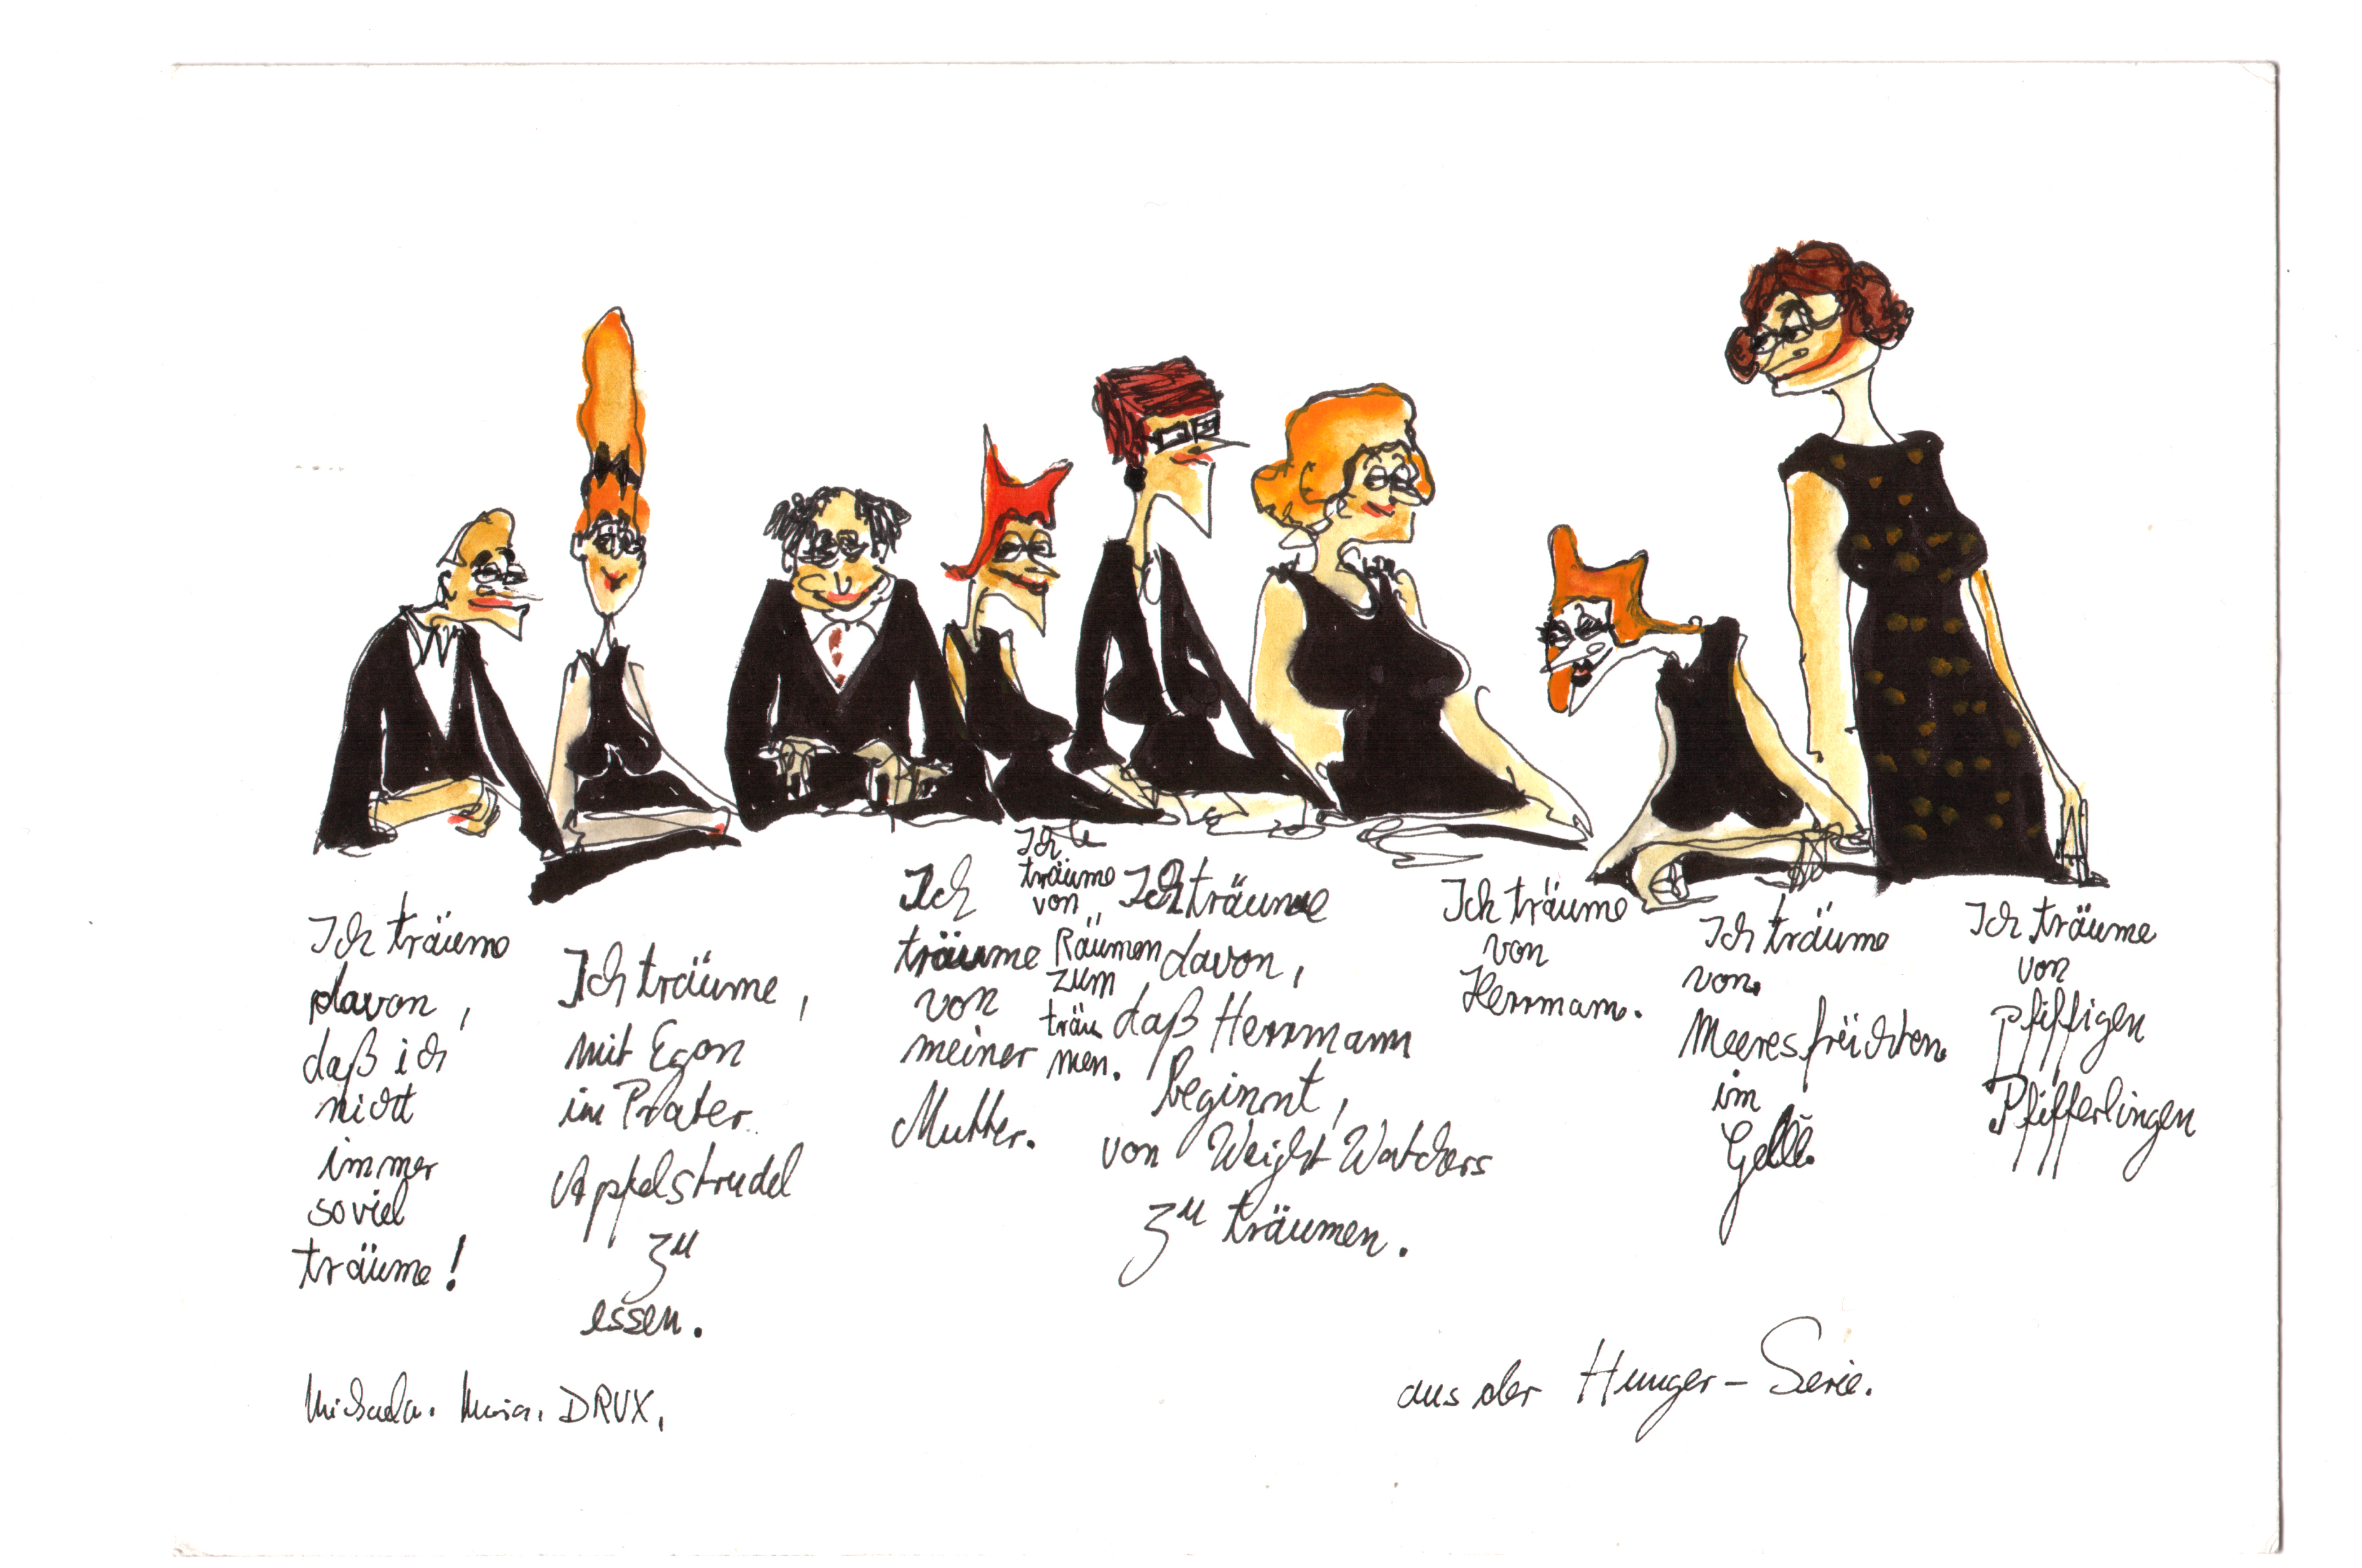 Ich träume
davon,
daß ich
nicht
immer
soviel
träume!
Ich träume,
mit Egon
im Prater
Apfelstrudel
zu
essen.
Ich
träume
von
meiner
Mutter.
Ich
träume
von
Räumen
zum
träu
men.
Ich träume
davon,
daß Herrmann
beginnt,
von Weight Watchers
zu träumen.
Ich träume
von
Herrmann.
Ich träume
von
Meeresfrüchten
im
Gelee.
Ich träume
von
pfiffigen
Pfifferlingen
Michaela. Maria. DRUX.
aus der Hunger-Serie.